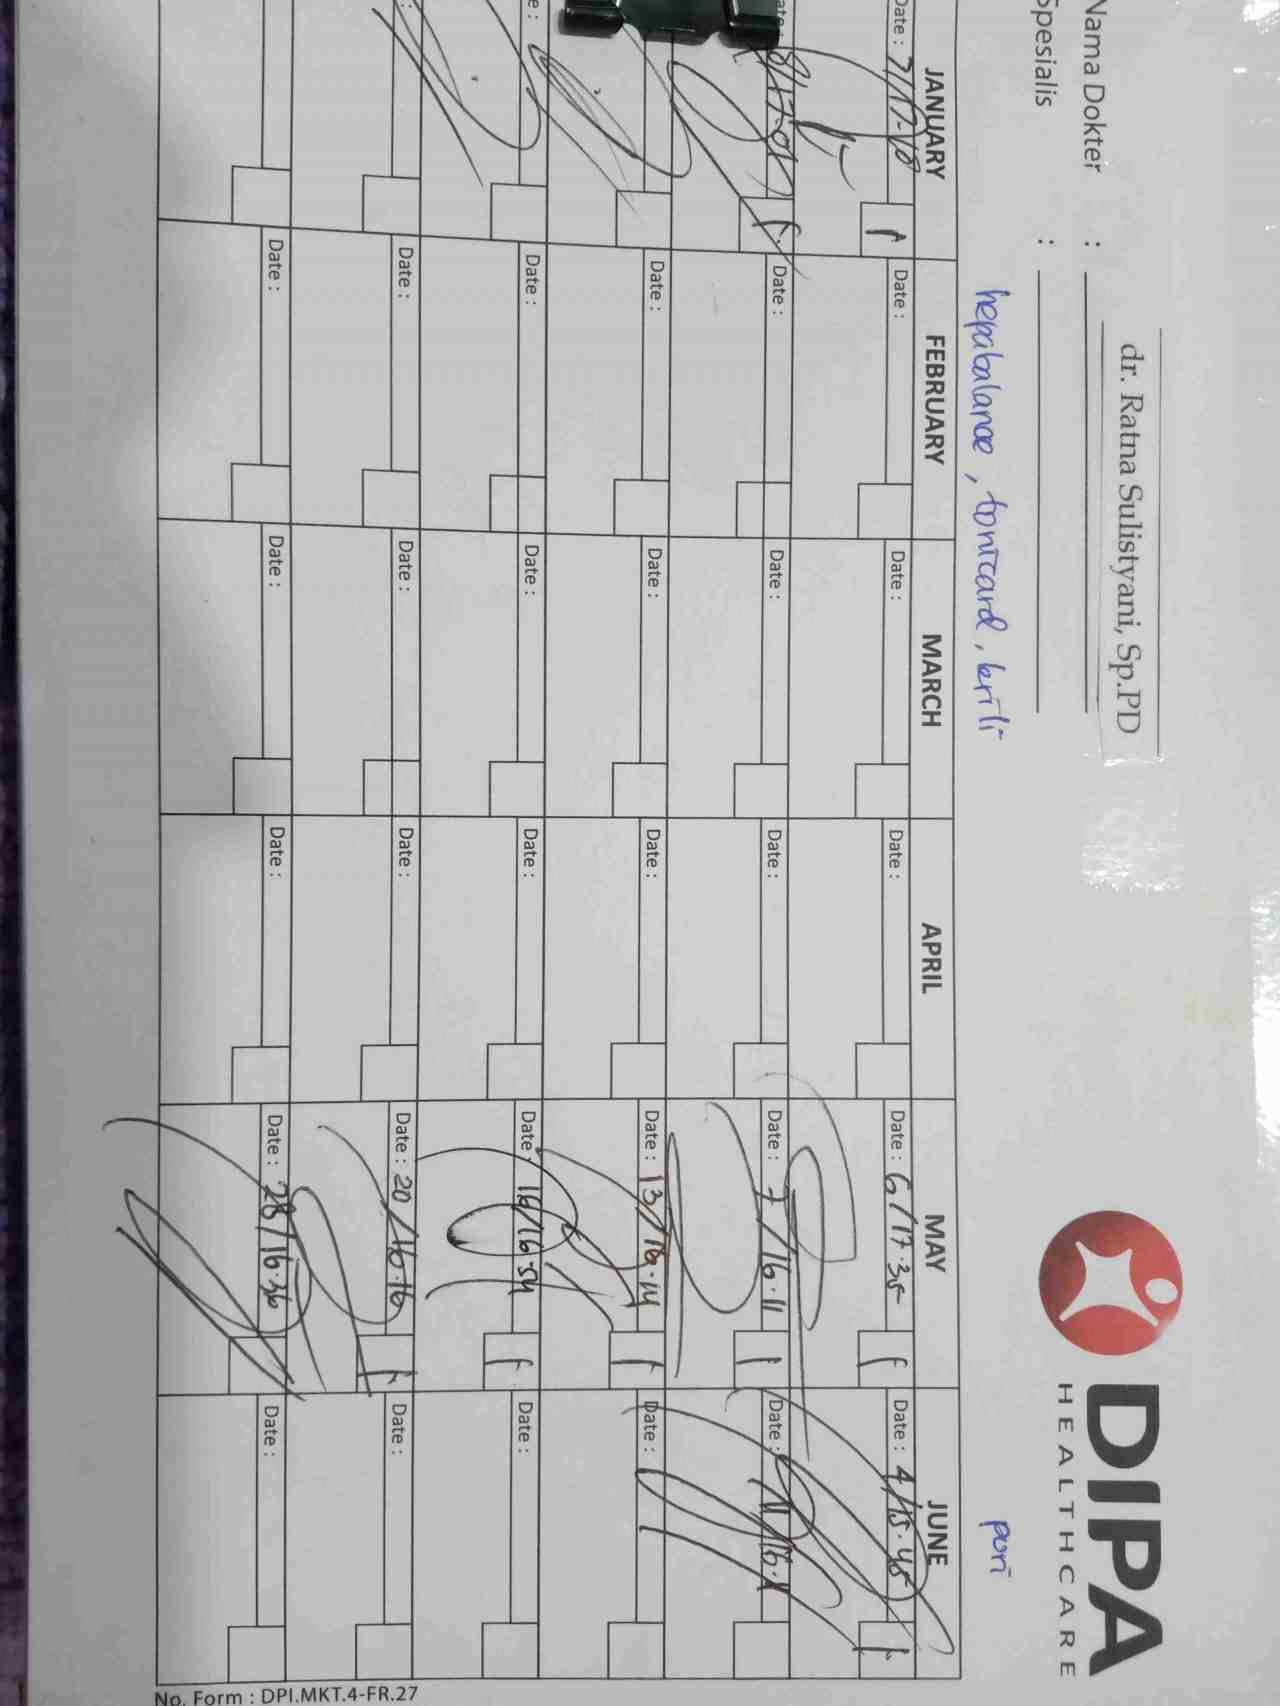 DIPA
HEALTHCARE
Nama Dokter : dr. Ratna Sulistyani, Sp.PD
Spesialis :
hepabalance, tonicard, krili
puri
JANUARY FEBRUARY MARCH APRIL MAY JUNE
Date : Date : Date : Date : Date : 6/17.35 Date : 4/15.45
Date : Date : Date : Date : 7/16.11 Date :
Date : Date : Date : Date : 13/16.14 Date :
Date : Date : Date : Date : 16/16.54 Date :
Date : Date : Date : Date : 20/16.16 Date :
Date : Date : Date : Date : 28/16.36 Date :
No. Form : DPI.MKT.4-FR.27